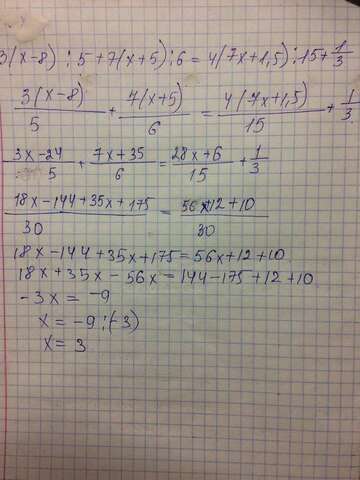 3(x-8) : 5 + 7(x+5) : 6 = 4(7x+1,5) : 15 + 1/3
3(x-8)/5 + 7(x+5)/6 = 4(7x+1,5)/15 + 1/3
3x-24/5 + 7x+35/6 = 28x+6/15 + 1/3
18x-144+35x+175/30 = 56x+12+10/30
18x-144+35x+175=56x+12+10
18x+35x-56x=144-175+12+10
-3x = -9
x = -9:(-3)
x = 3